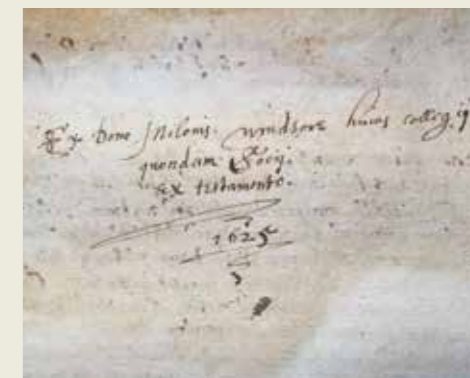 Ex dono Milonis windsore huius collegij
quondam Socij
ex testamento.
1625